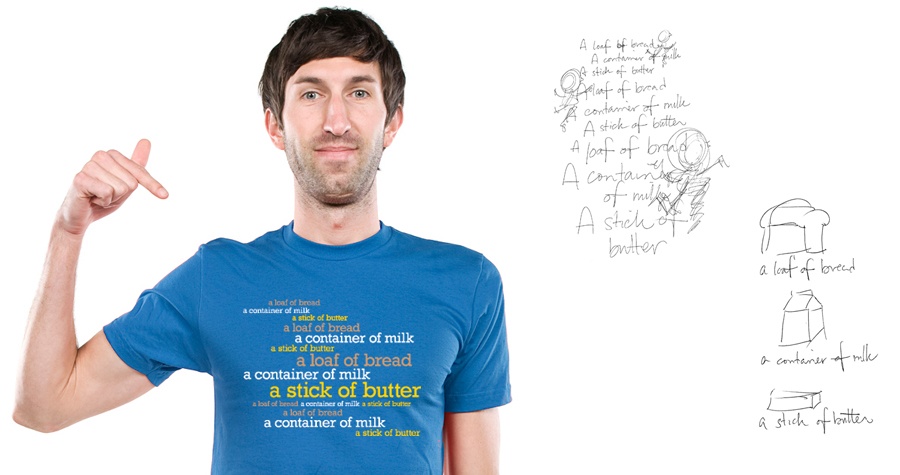 a loaf of bread
a container of milk
a stick of butter
a loaf of bread
a container of milk
a stick of butter
a loaf of bread
a container of milk
a stick of butter
a loaf of bread a container of milk a stick of butter
a loaf of bread
a container of milk
a stick of butter
A loaf of bread
A container of milk
A stick of butter
A loaf of bread
A container of milk
A stick of butter
A loaf of bread
A container
of milk
A stick of
butter
a loaf of bread
a container of milk
a stick of butter